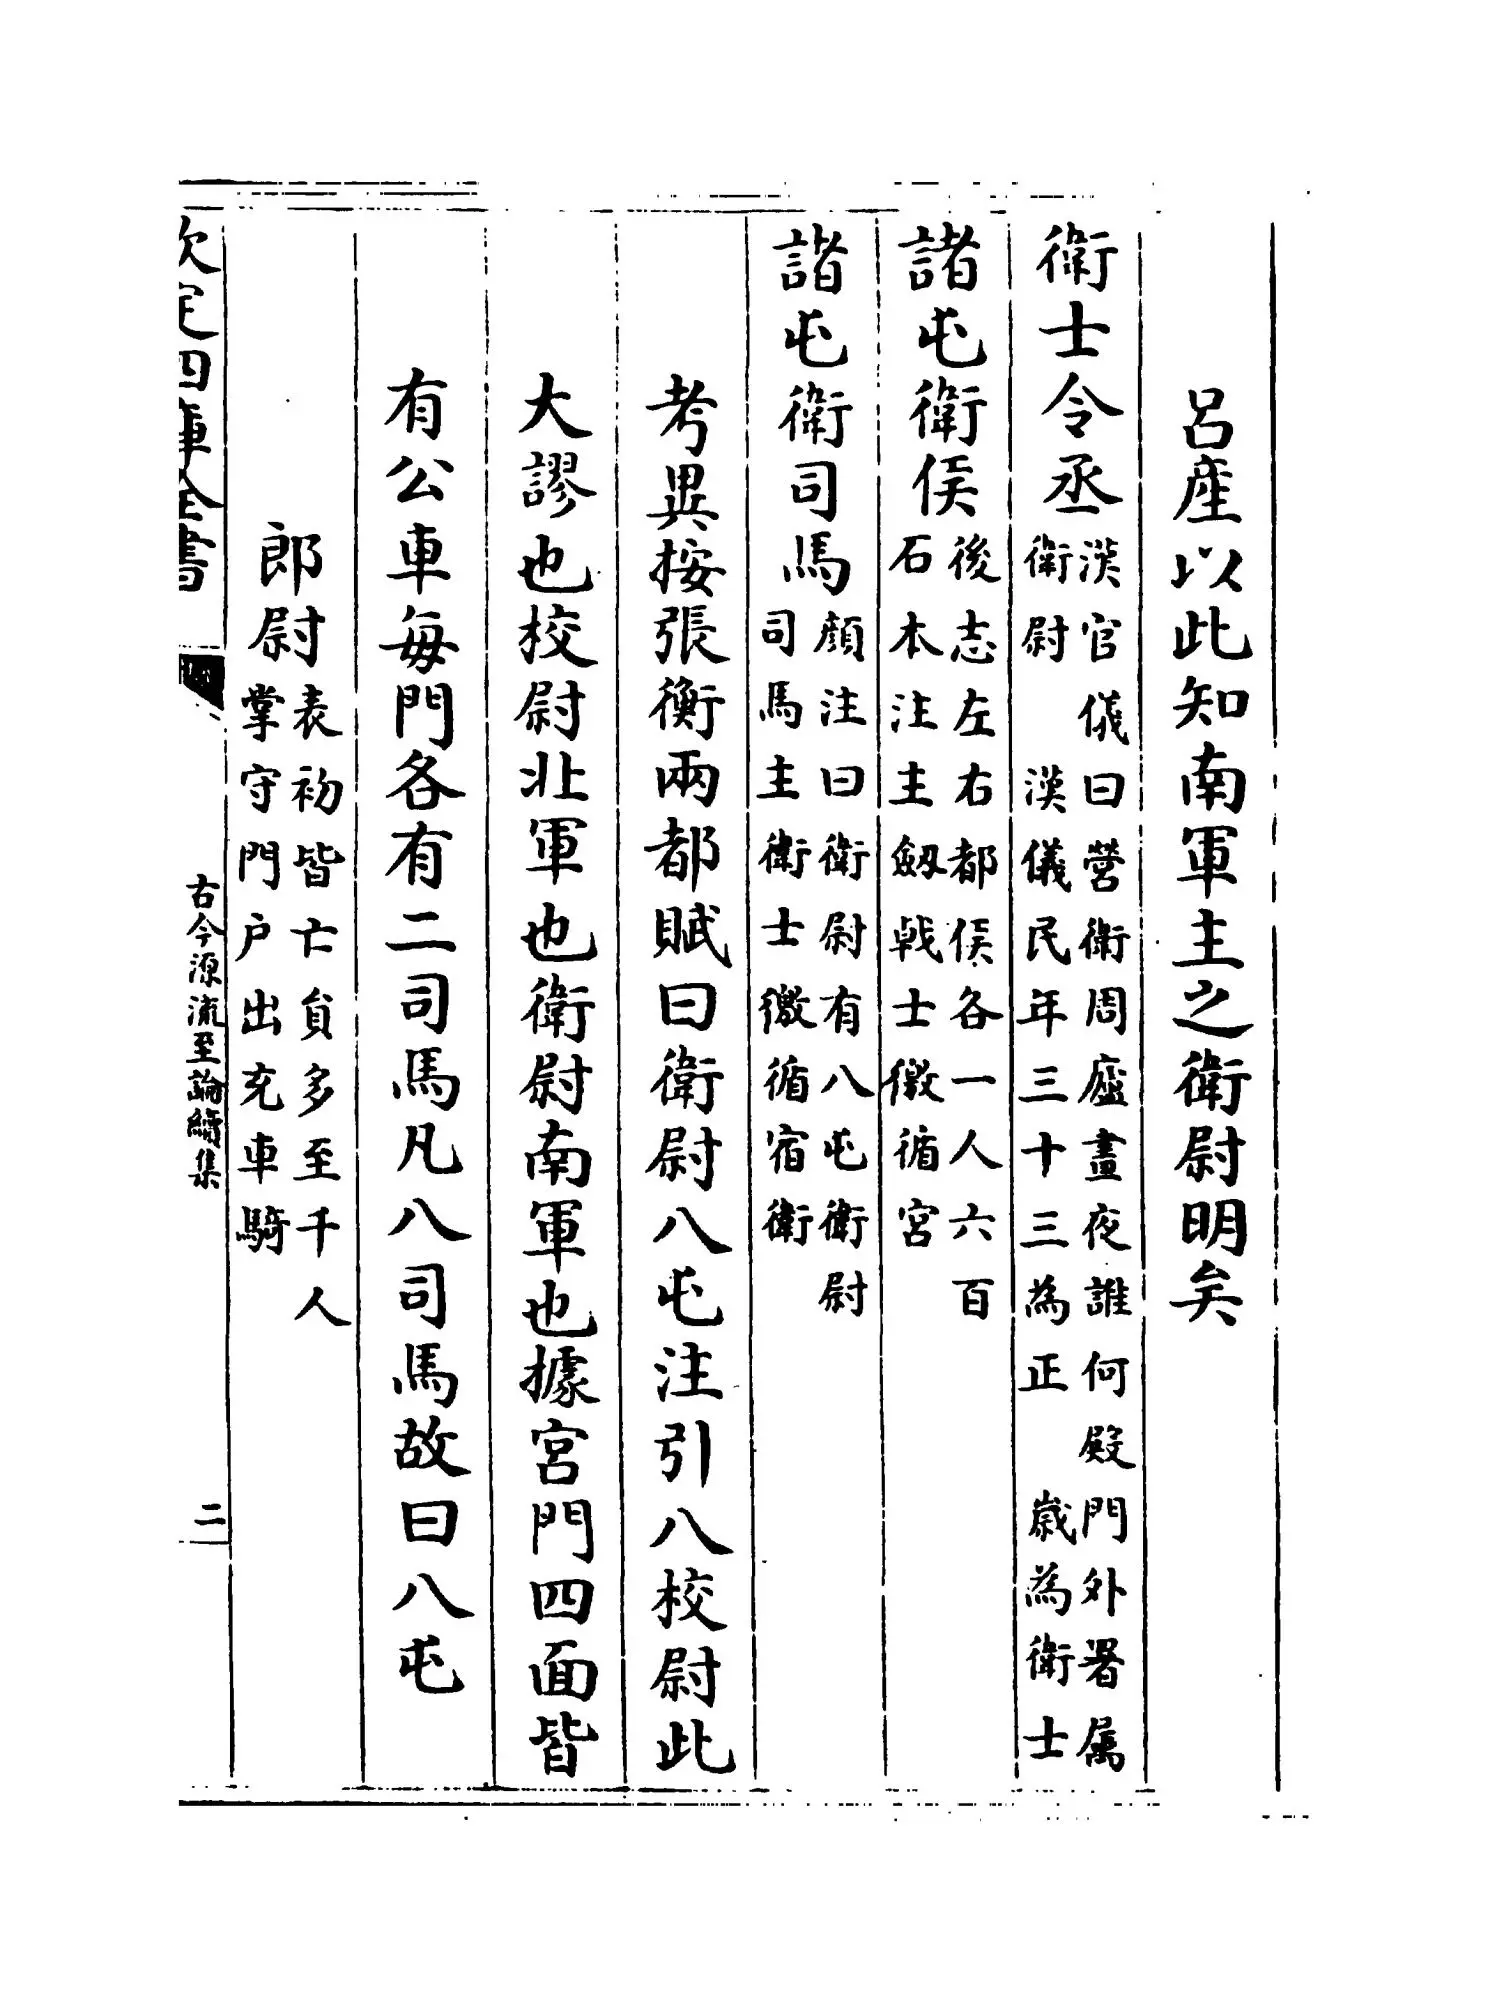 呂産以此知南軍主之衛尉明矣
衛士令丞
漢官儀曰營衛周廬晝夜誰何殿門外署属
衛尉 漢儀民年三十三為正 歳為衛士
諸屯衛侯
後志左右都侯各一人六百
石本注主劔戟士徼循宮
諸屯衛司馬
顔注曰衛尉有八屯衛尉
司馬主衛士徼循宿衛
考異按張衡兩都賦曰衛尉八屯注引八校尉此
大謬也校尉北軍也衛尉南軍也據宮門四面皆
有公車毎門各有二司馬凡八司馬故曰八屯
郎尉
表初皆亡負多至千人
掌守門户出充車騎
欽定四庫全書
古今源流至論續集
二